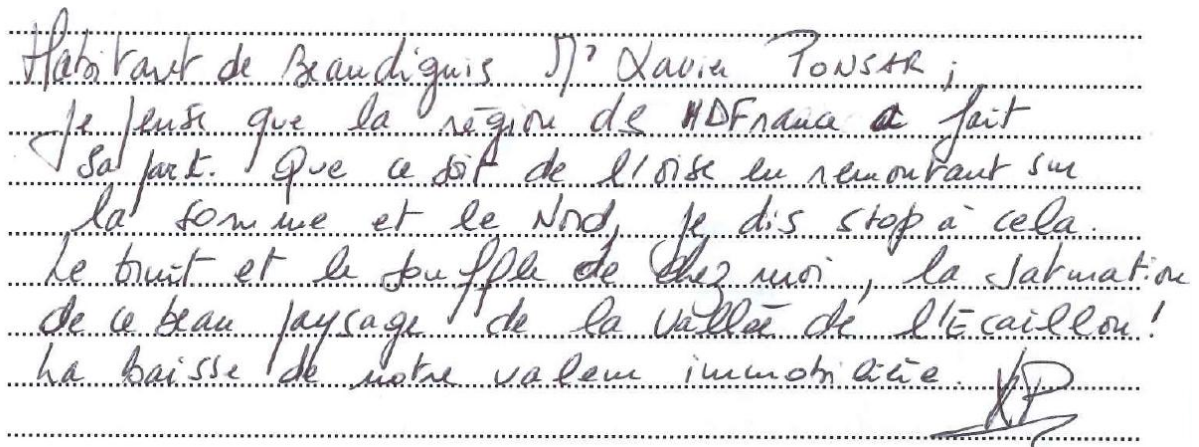 Habitant de Beaudignis Mr Xavier PONSAR ;
je pense que la région de HDFrance a fait
sa part. Que ce soit de l'oise en remontant sur
la somme et le Nord, je dis stop à cela.
Le bruit et le souffle de chez moi, la saturation
de ce beau paysage de la vallée de l'Ecaillon !
La baisse de notre valeur immobilière. XP